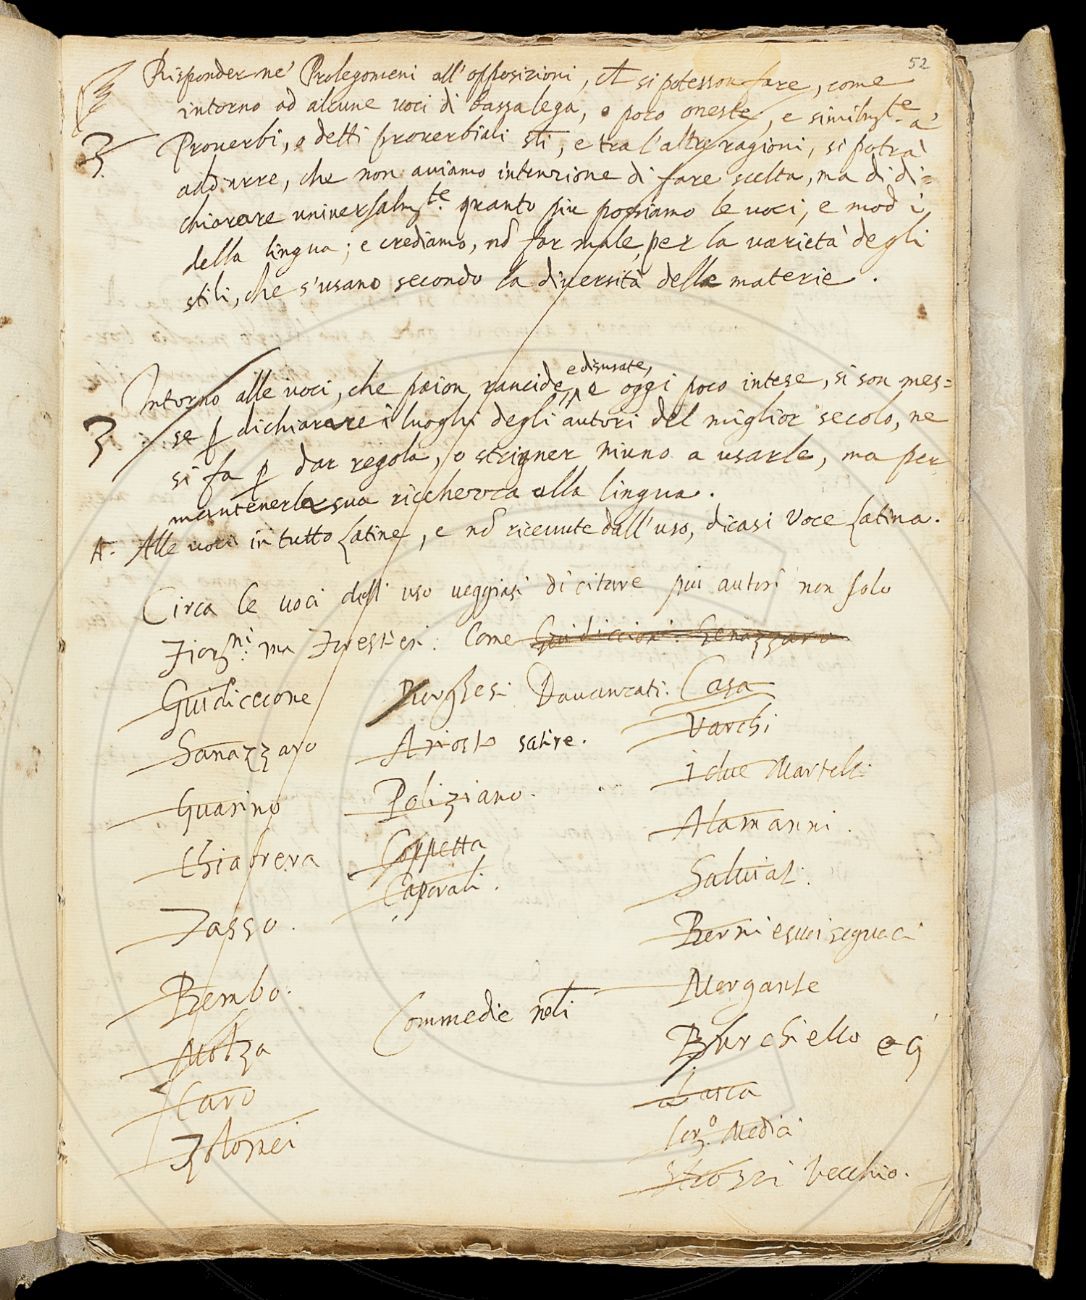 52
Risponder ne' Prolegomeni all'opposizioni, ch si potesson fare, come
intorno ad alcune voci di bassa lega, o poco oneste, e similmte a'
3. Proverbi, o detti proverbiali sti, e tra l'altre ragioni, si potrà
addurre, che non aviamo intenzione di fare scelta, ma di di=
chiarare universalmte quanto più possiamo le voci, e modi
della lingua; e crediamo, nō far male, per la varietà degli
stili, che s'usano secondo la diversità delle materie.
Intorno alle voci, che paion rancide, e disusate, e oggi poco intese, si son mes=
3 se p dichiarare i luoghi degli autori del miglior secolo, ne
si fa p dar regola, o strigner niuno a usarle, ma per
mantener la sua ricchezza alla lingua.
A. Alle voci in tutto latine, e nō ricevute dall'uso, dicasi Voce latina.
Circa le voci dell uso veggiasi di citare più autori non solo
Fiorni ma Forestieri. Come Guidiccioni. Senazzaro
Guidiccione Borghesi Davanzati. Casa
Varchi
Sanazzaro Ariosto satire.
i due Martelli
Guarino Poliziano.
Alamanni.
Chiabrera Coppetta
Caporali.
Salviati.
Tasso.
Berni e suoi seguaci
Bembo.
Commedie
Morgante
Molza
Burchiello
Caro
Lasca
Lorzo Medici
Tolomei
Strozzi Vecchio.